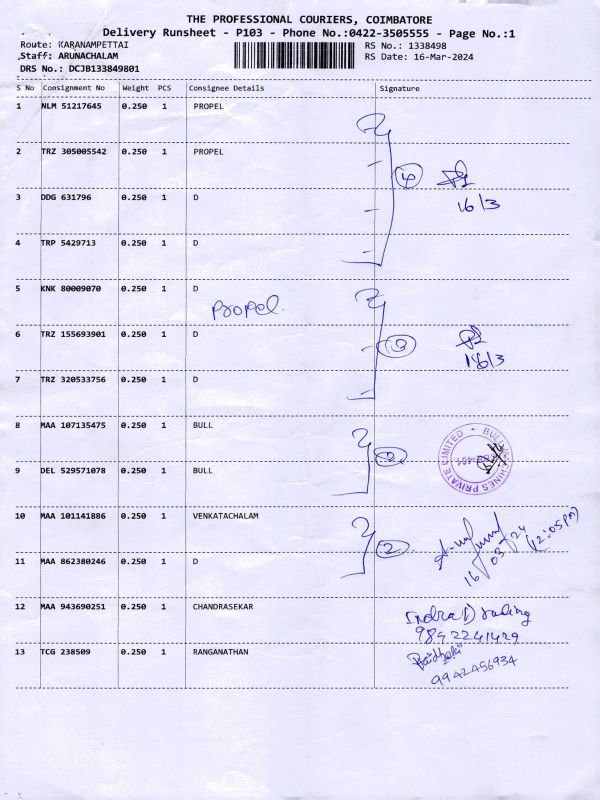 THE PROFESSIONAL COURIERS, COIMBATORE
Delivery Runsheet - P103 - Phone No.:0422-3505555 - Page No.:1
Route: KARANAMPETTAI RS No.: 1338498
Staff: ARUNACHALAM RS Date: 16-Mar-2024
DRS No.: DCJB133849801
S No Consignment No Weight PCS Consignee Details Signature
1 NLM 51217645 0.250 1 PROPEL
2 TRZ 305005542 0.250 1 PROPEL
4
16/3
3 DDG 631796 0.250 1 D
4 TRP 5429713 0.250 1 D
5 KNK 80009070 0.250 1 D
propel.
6 TRZ 155693901 0.250 1 D
3
16/3
7 TRZ 320533756 0.250 1 D
8 MAA 107135475 0.250 1 BULL
2
9 DEL 529571078 0.250 1 BULL
PRIVATE LIMITED
10 MAA 101141886 0.250 1 VENKATACHALAM
2
16 03-24 (12:05PM)
11 MAA 862380246 0.250 1 D
12 MAA 943690251 0.250 1 CHANDRASEKAR
Indra Trading
9842241429
13 TCG 238509 0.250 1 RANGANATHAN
9942456934